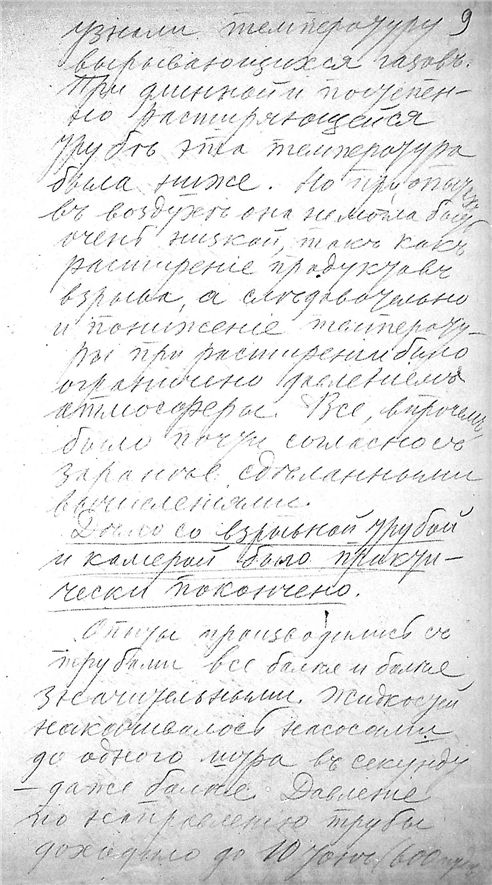 узнали температуру 9
вырывающихся газовъ.
При длинной и постепен-
но расширяющейся
трубѣ эта температура
была ниже. Но при опытахъ
въ воздухѣ она не могла быть
очень низкой, такъ какъ
расширеніе продуктовъ
взрыва, а слѣдовательно
и пониженіе температу-
ры при расширеніи было
ограничено давленіемъ
атмосферы. Все, впрочемъ,
было почти согласно съ
заранѣе сдѣланными
вычисленіями.
Дѣло со взрывной трубой
и камерой было практи-
чески покончено.
Опыты производились съ
трубами все болѣе и болѣе
значительными. Жидкостей
накачивалось насосами
до одного литра въ секунду
– даже болѣе. Давленіе
по направленію трубы
доходило до 10 тоннъ (600